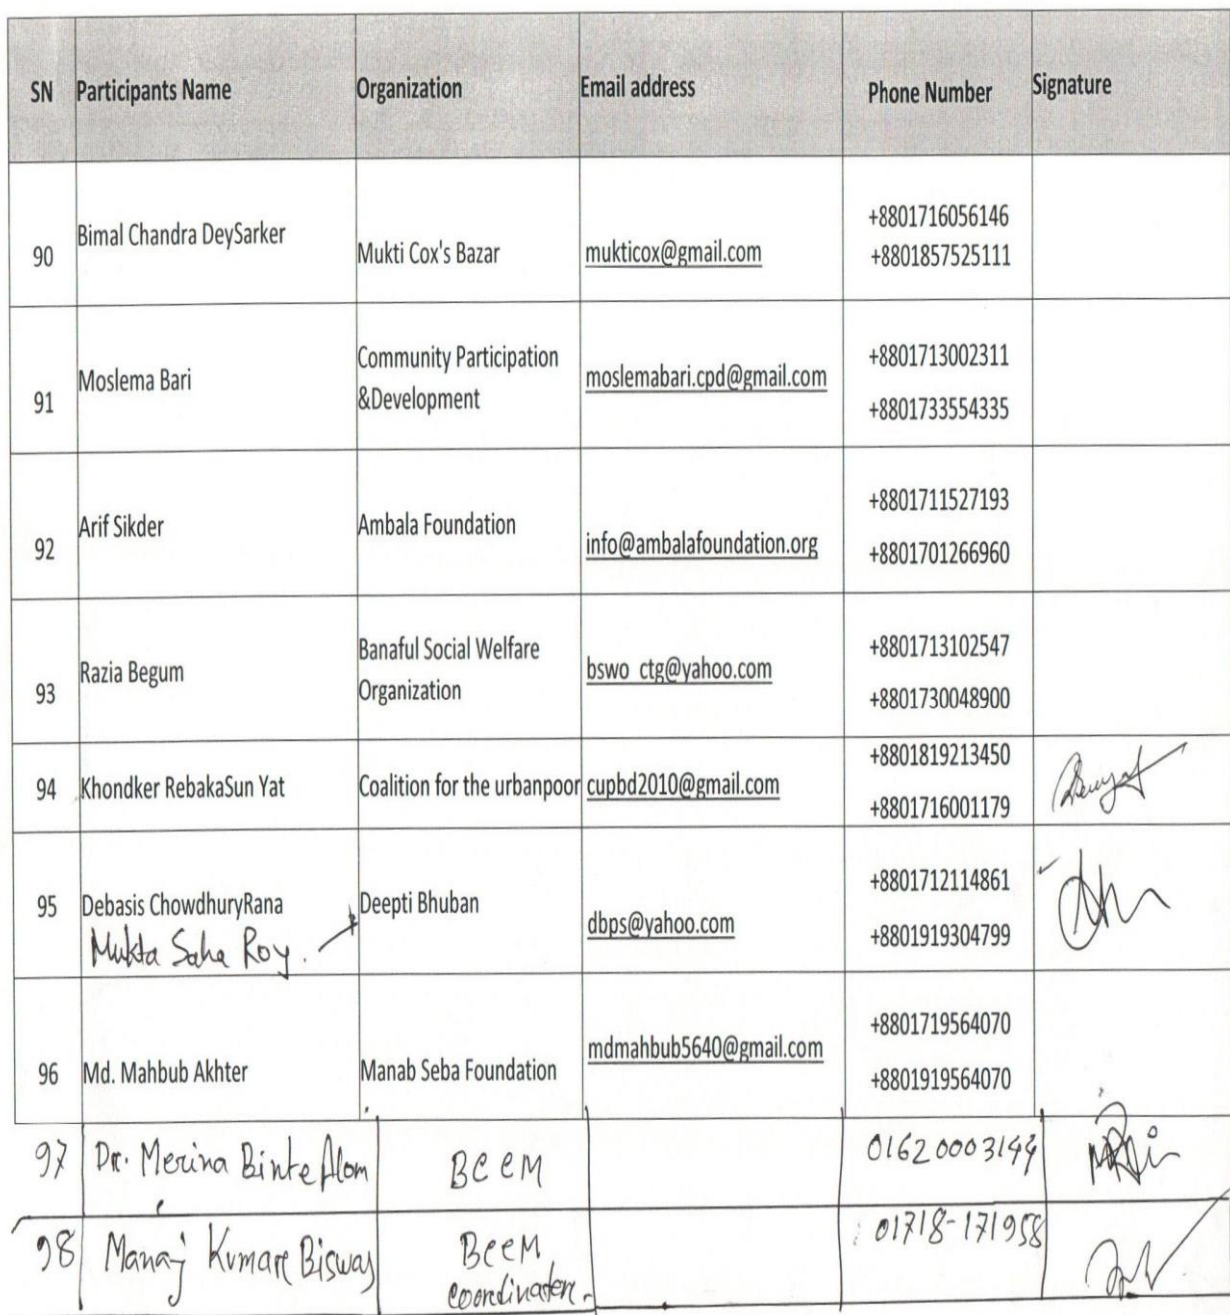 SN Participants Name Organization Email address Phone Number Signature
90 Bimal Chandra DeySarker Mukti Cox's Bazar mukticox@gmail.com +8801716056146
+8801857525111
91 Moslema Bari Community Participation
&Development moslemabari.cpd@gmail.com +8801713002311
+8801733554335
92 Arif Sikder Ambala Foundation info@ambalafoundation.org +8801711527193
+8801701266960
93 Razia Begum Banaful Social Welfare
Organization bswo_ctg@yahoo.com +8801713102547
+8801730048900
94 Khondker RebakaSun Yat Coalition for the urbanpoor cupbd2010@gmail.com +8801819213450
+8801716001179
95 Debasis ChowdhuryRana Deepti Bhuban dbps@yahoo.com +8801712114861
+8801919304799
Mukta Saha Roy.
96 Md. Mahbub Akhter Manab Seba Foundation mdmahbub5640@gmail.com +8801719564070
+8801919564070
97 Dr. Merina Binte Alom BCeM
98 Manaj Kumar Biswas BCeM 01718-171958
coordinator.